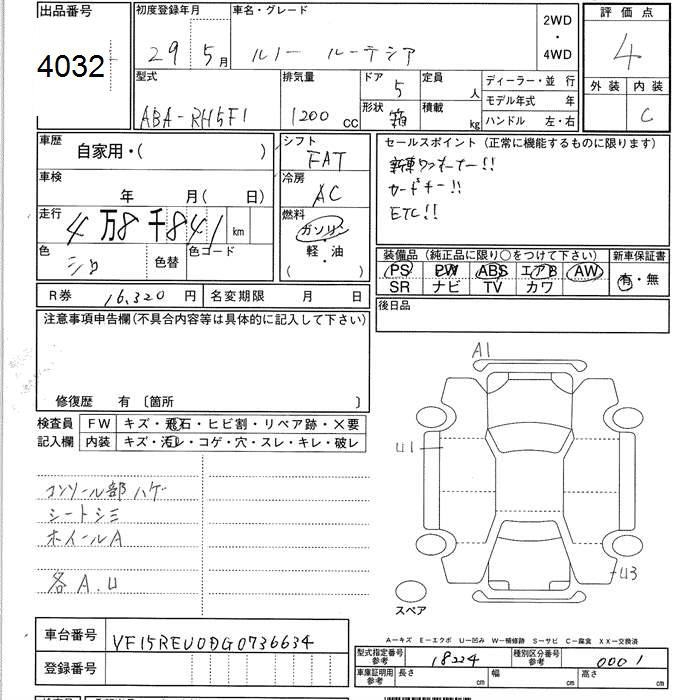 出品番号
4032
初度登録年月
29 5月
車名・グレード
ルノー ルーテシア
2WD
・
4WD
評価点
4
外装 内装
C
型式
ABA-RH5F1
排気量
1200 cc
ドア
5
形状
箱
定員
人
積載
kg
ディーラー・並行
モデル年式 年
ハンドル 左・右
車歴
自家用・( )
車検
年 月( 日)
走行
4万8千841 km
色
シロ
色替
色コード
シフト
FAT
冷房
AC
燃料
ガソリン
・
軽・油
( )
セールスポイント(正常に機能するものに限ります)
新車ワンオーナー!!
カードキー!!
ETC!!
装備品(純正品に限り○をつけて下さい)
新車保証書
PS PW ABS エアB AW
SR ナビ TV カワ
有・無
R券 16,320 円
名変期限 月 日
後日品
注意事項申告欄(不具合内容等は具体的に記入して下さい)
修復歴 有 〔箇所 〕
検査員
記入欄
FW キズ・飛石・ヒビ割・リペア跡・×要
内装 キズ・汚レ・コゲ・穴・スレ・キレ・破レ
コンソール部ハゲ
シートシミ
ホイールA
各A.U
A1
U1
U3
スペア
A–キズ E–エクボ U–凹み W–補修跡 S–サビ C–腐食 XX–交換済
車台番号
VF15REU0DG0736634
登録番号
型式指定番号
参考
18224
種別区分番号
参考
0001
車庫証明用
参考
長さ cm
幅 cm
高さ cm